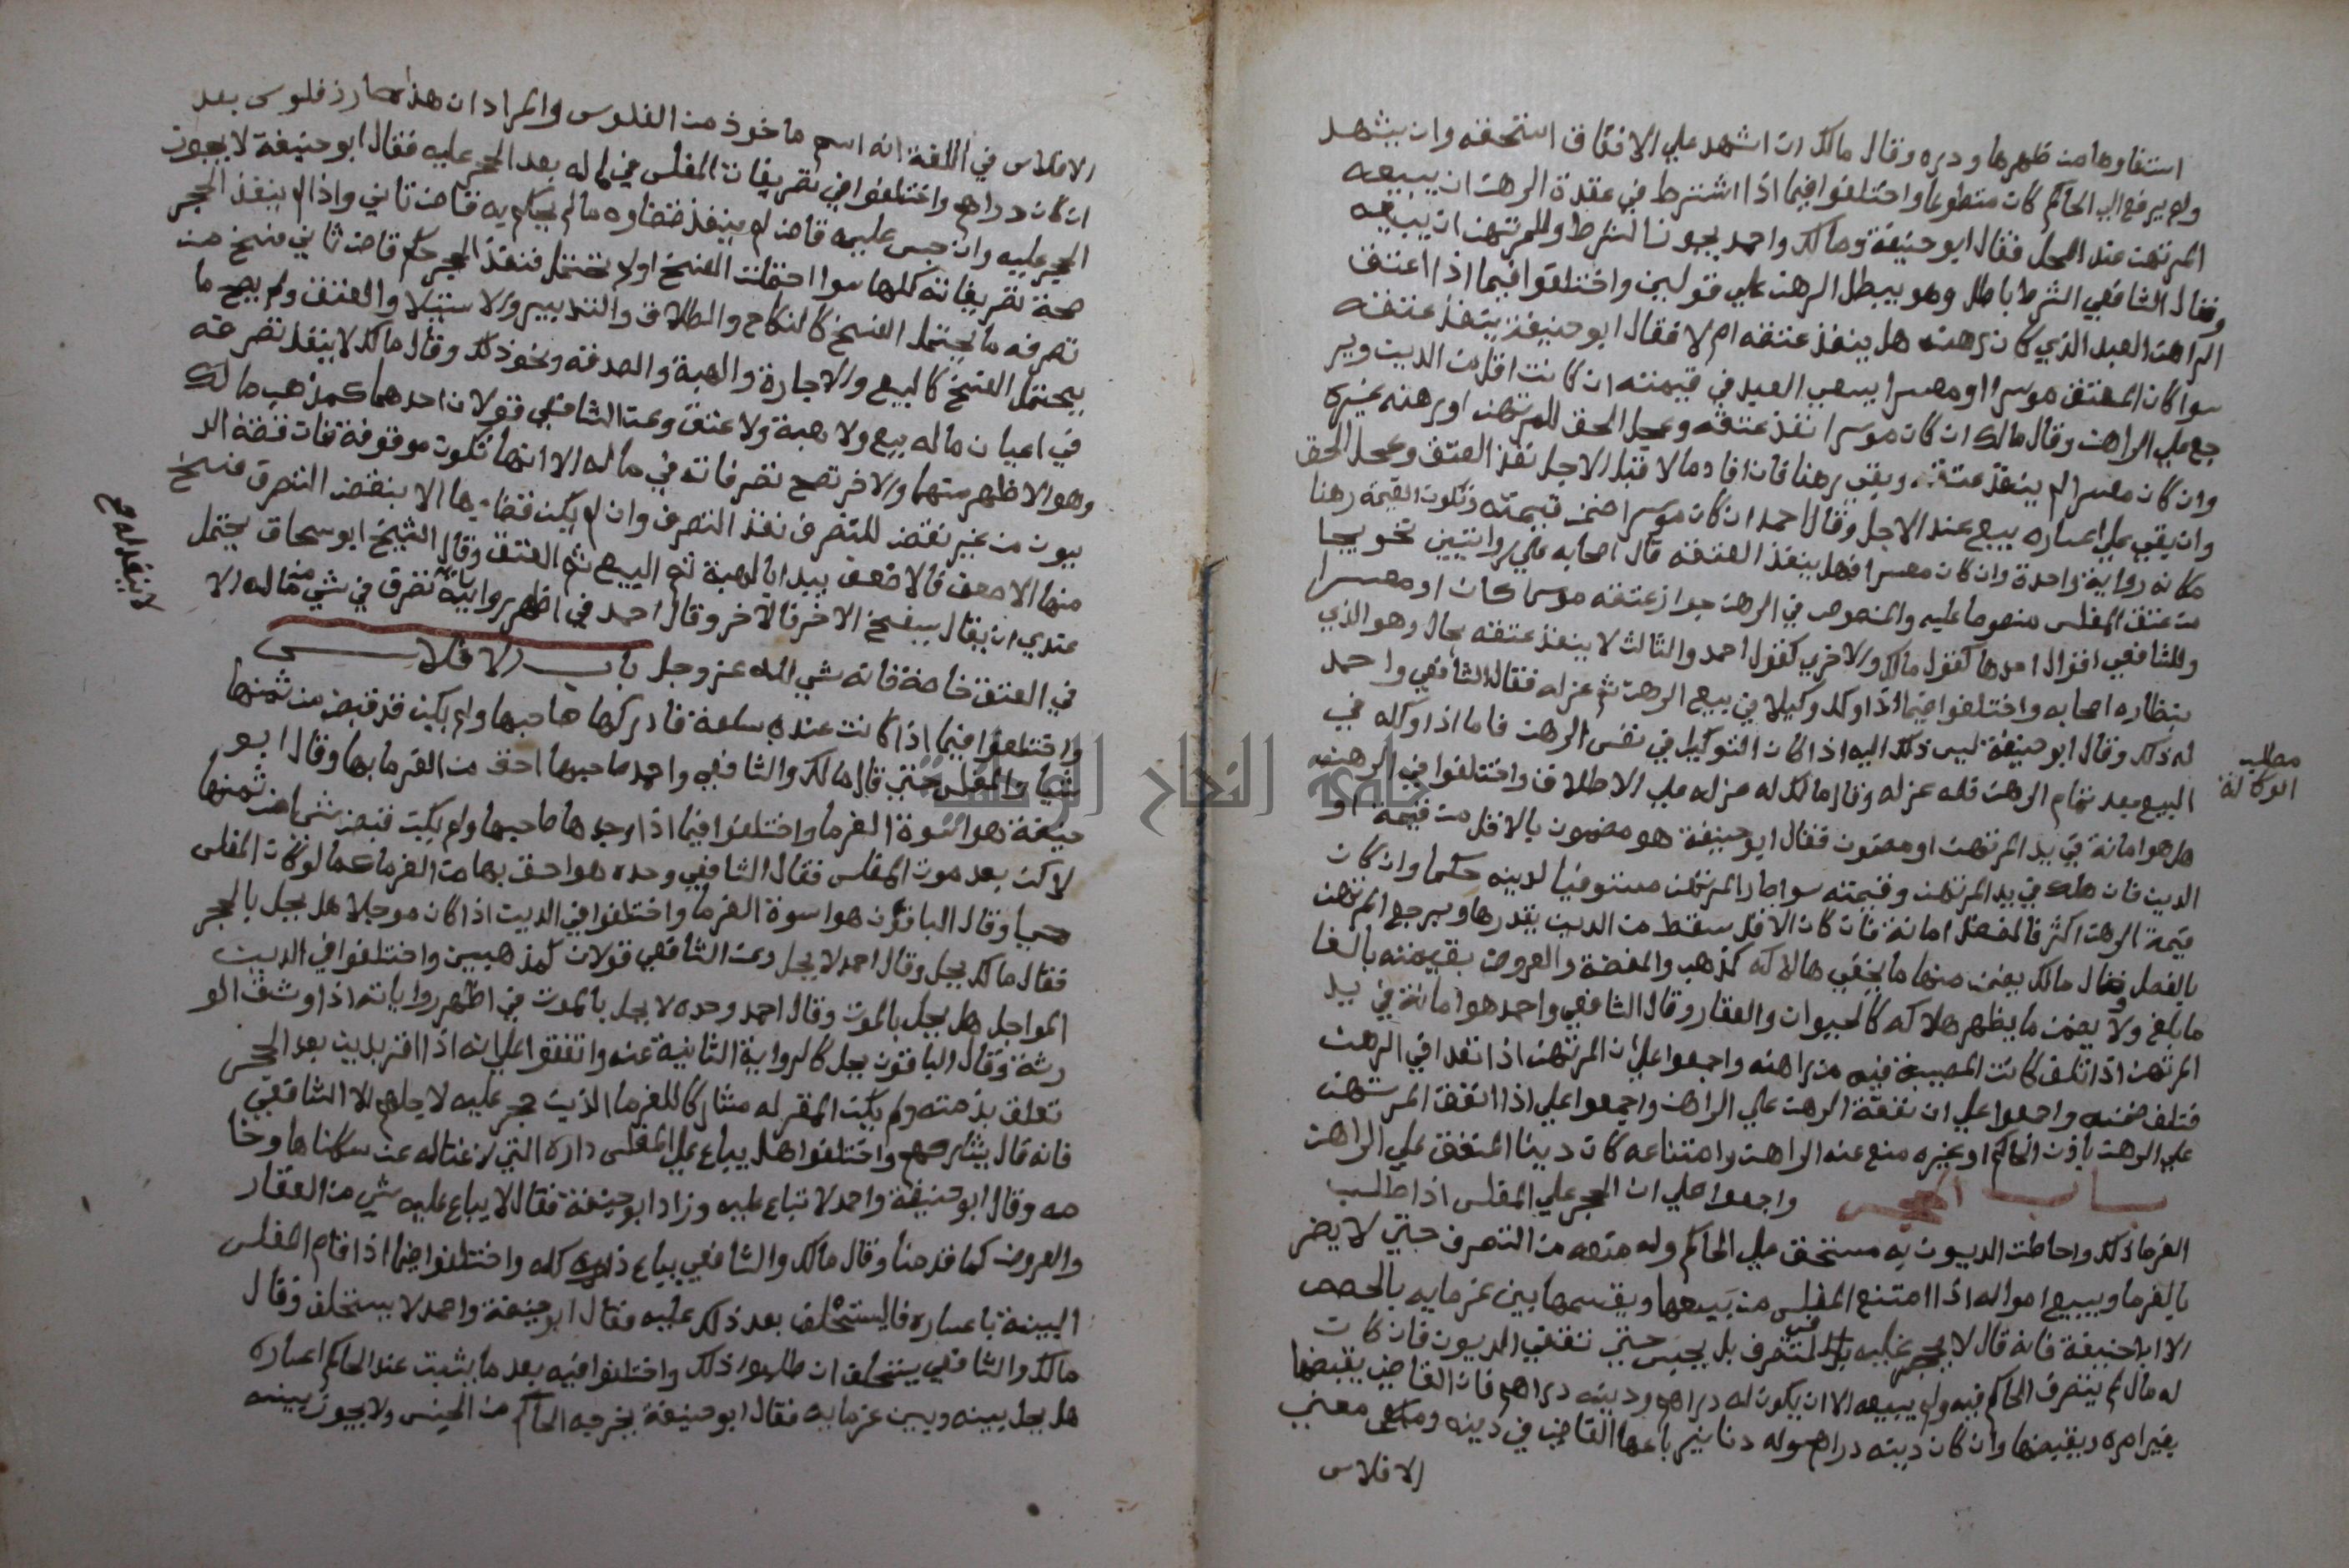 استفاوها من ظهرها ودره وقال مالك ان اشهد علي الانفاق استحقه وان يشهد
ولم يرفع الي الحاكم كان متطوعا واختلفوا فيما اذا اشترط في عقدة الرهن ان يبيعه
المرتهن عند المحل فقال ابو حنيفة ومالك واحمد يجوز الشرط وللمرتهن ان يبيعه
وقال الشافعي الشرط باطل وهو يبطل الرهن علي قولين واختلفوا فيما اذا اعتق
الراهن العبد الذي كان رهنه هل ينفذ عتقه ام لا فقال ابو حنيفة ينفذ عتقه
سوا كان المعتق موسرا او معسرا يسعي العبد في قيمته ان كانت اقل من الدين وير
جع علي الراهن وقال مالك ان كان موسرا نفذ عتقه وعجل الحق للمرتهن او رهنه غيره
وان كان معسرا لم ينفذ عتقه وبقي رهنا فان افاد مالا قبل الاجل نفذ العتق وعجل الحق
وان بقي علي اعساره بيع عند الاجل وقال احمد ان كان موسرا ضمن قيمته وتكون القيمة رهنا
مكانه رواية واحدة وان كان معسرا فهل ينفذ العتقه قال اصحابه علي روايتين تخريجا
من عتق المفلس منصوصا عليه والمنصوص في الرهن جواز عتقه موسرا كان او معسرا
وللشافعي اقوال احدها كقول مالك والاخري كقول احمد والثالث لا ينفذ عتقه بحال وهو الذي
ينظاره اصحابه واختلفوا فيما اذا وكل وكيلا في بيع الرهن ثم عزله فقال الشافعي واحمد
له ذلك وقال ابو حنيفة ليس ذلك اليه اذا كان التوكيل في نفس الرهن فاما اذا وكله في
البيع بعد تمام الرهن فله عزله وقال مالك له عزله علي الاطلاق واختلفوا في الرهن
هل هو امانة في يد المرتهن او مضمون فقال ابو حنيفة هو مضمون بالاقل من قيمة او
الدين فان هلك في يد المرتهن وقيمته سوا صار المرتهن مستوفيا لدينه حكما وان كان
قيمة الرهن اكثر فالفضل امانة فان كان الاقل سقط من الدين بقدرها ويرجع المرتهن
بالفضل وقال مالك يضمن منها ما يخفي هلاكه كالذهب والفضة والعروض بقيمته بالغا
ما بلغ ولا يضمن ما يظهر هلاكه كالحيوان والعقار وقال الشافعي واحمد هو امانة في يد
المرتهن اذا تلف كانت المصيبة فيه من راهنه واجمعوا علي ان المرتهن اذا تعدا في الرهن
فتلف ضمنه واجمعوا علي ان نفقة الرهن علي الراهن واجمعوا علي اذا انفق المرتهن
علي الرهن باذن الحاكم او غيره منع عنه الراهن وامتناعه كان دينا المنفق علي الراهن
باب الحجر واجمعوا علي ان الحجر علي المفلس اذا طلب
الغرما ذلك واحاطت الديون به مستحق علي الحاكم وله منعه من التصرف حتي لا يضر
بالغرما ويبيع امواله اذا امتنع المفلس من بيعها ويقسمها بين غرمايه بالحصص
الا ابا حنيفة فانه قال لا يحجر عليه في التصرف بل يحبس حتي تقضي الديون فان كان
له مال لم يتصرف الحاكم فيه ولم يبيعه الا ان يكون له دراهم ودينه دراهم فان القاضي يقبضها
بغير امره ويقبضها وان كان دينه دراهم وله دنانير باعها القاضي في دينه ومعني
الافلاس
مطلب
الوكالة
الافلاس في اللغة انه اسم ماخوذ من الفلوس والمراد ان هذا صار ذ فلوس بعد
ان كان دراهم واختلفوا في تصريفات المفلس في ماله بعد الحجر عليه فقال ابو حنيفة لا يجوز
الحجر عليه وان حبس عليه قاض لم ينفذ قضاوه ما لم يحكم به قاض ثاني واذا لم ينفذ الحجر
صحة تصريفاته كلها سوا احتملت الفسخ او لم تحتمل فنفذ الحجر حكم قاض ثاني فسخ من
تصرفه ما يحتمل الفسخ كالنكاح والطلاق والتدبير والاستيلا والعتق ولم يصح ما
يحتمل الفسخ كالبيع والاجارة والهبة والصدقة ونحو ذلك وقال مالك لا ينفذ تصرفه
في اعيان ماله بيع ولا هبة ولا عتق وعن الشافعي قولان احدهما كمذهب مالك
وهو الاظهر منهما والاخر تصح تصرفاته في ماله الا انها تكون موقوفة فان قضة الد
يون من غير نقض للتصرف نفذ التصرف وان لم يكن قضاءها الا بنقض التصرف فسخ
منها الاضعف فالاضعف يبدا بالهبة ثم البيع ثم العتق وقال الشيخ ابو سحاق يحتمل
عندي ان يقال يفسخ الاخر فالاخر وقال احمد في اظهر رواياته تصرف في شي من ماله الا
في العتق خاصة فانه شي لله عز وجل باب الافلاس
واختلفوا فيما اذا كانت عنده سلعة فادركها صاحبها ولم يكن قد قبض من ثمنها
شيا والمفلس حتي قال مالك والشافعي واحمد صاحبها احق من الغرما بها وقال ابو
حنيفة هو اسوة الغرما واختلفوا فيما اذا وجدها صاحبها ولم يكن قبض شي من ثمنها
لاكن بعد موت المفلس فقال الشافعي وحده هو احق بها من الغرما كما لو كان المفلس
حيا وقال الباقون هو اسوة الغرما واختلفوا في الدين اذا كان موجلا هل يحل بالحجر
فقال مالك يحل وقال احمد لا يحل وعن الشافعي قولان كمذهبين واختلفوا في الدين
المواجل هل يحل بالموت وقال احمد وحده لا يحل بالموت في اظهر رواياته اذا وشق الو
رثة وقال الباقون يحل كالرواية الثانية عنه واتفقوا علي انه اذا اقر بدين بعد الحجر
تعلق بذمته ولم يكن المقر له مشاركا للغرما الذين حجر عليه لاجلهم الا الشافعي
فانه قال يشاركهم واختلفوا هل يباع علي المفلس داره التي لا غنا له عن سكناها وخا
مه وقال ابو حنيفة واحمد لا تباع عليه وزاد ابو حنيفة فقال لا يباع عليه شي من العقار
والعروض كما قدمنا وقال مالك والشافعي يباع ذلك كله واختلفوا فيما اذا قام المفلس
البينة باعساره فاليستحلف بعد ذلك عليه فقال ابو حنيفة واحمد لا يستحلف وقال
مالك والشافعي يستحلف ان طلبوا ذلك واختلفوا فيه بعد ما يثبت عند الحاكم اعساره
هل يحل بينه وبين غرمايه فقال ابو حنيفة يخرجه الحاكم من الحبس ولا يجوز بينه
لا ينفد له صح
جامعة النجاح الوطنية